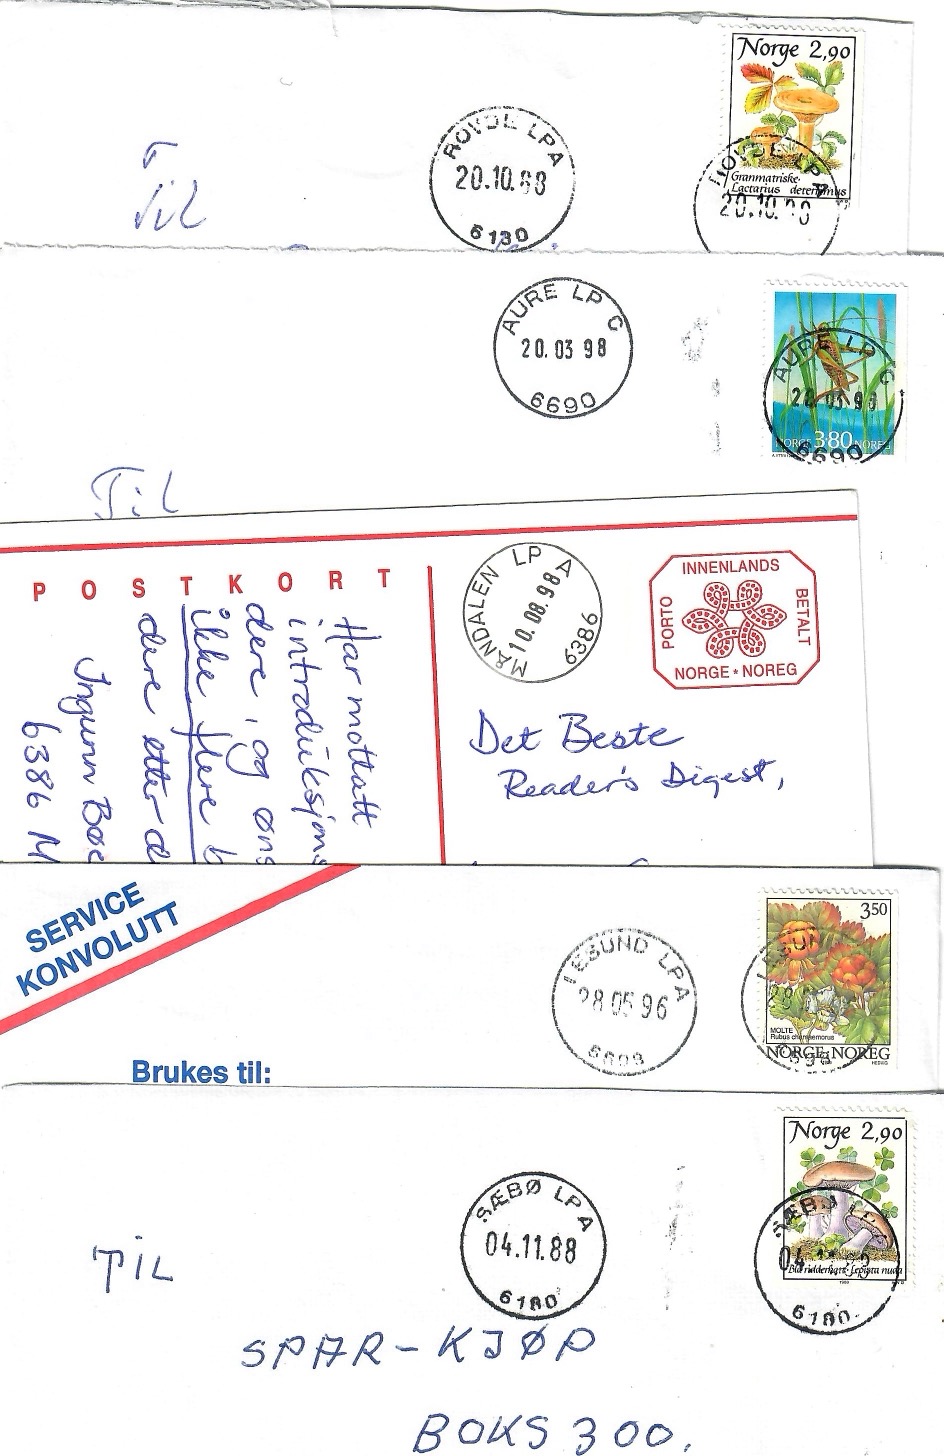 Norge 2,90
ROVDE LPA
20.10.88
6130
Granmatriske
Lactarius deterrimus
ROVDE LPA
20.10.88
Til
AURE LP C
20.03 98
6690
AURE LP C
6690
NORGE 3.80 NOREG
Til
POSTKORT
MÅNDALEN LP A
10.08.98
6386
INNENLANDS
PORTO
BETALT
NORGE * NOREG
Har mottatt
introduksjons
dere, og øns
ikke flere b
dere etter d
Ingunn Bøe
6386 M
Det Beste
Reader's Digest,
SERVICE
KONVOLUTT
Brukes til:
ESUND LPA
28 05 96
3.50
MOLTE
Rubus chamaemorus
NORGE NOREG
Norge 2,90
SÆBØ LPA
04.11.88
6180
SÆBØ
Blå ridderhatt - Lepista nuda
6180
TIL
SPAR-KJØP
BOKS 300.